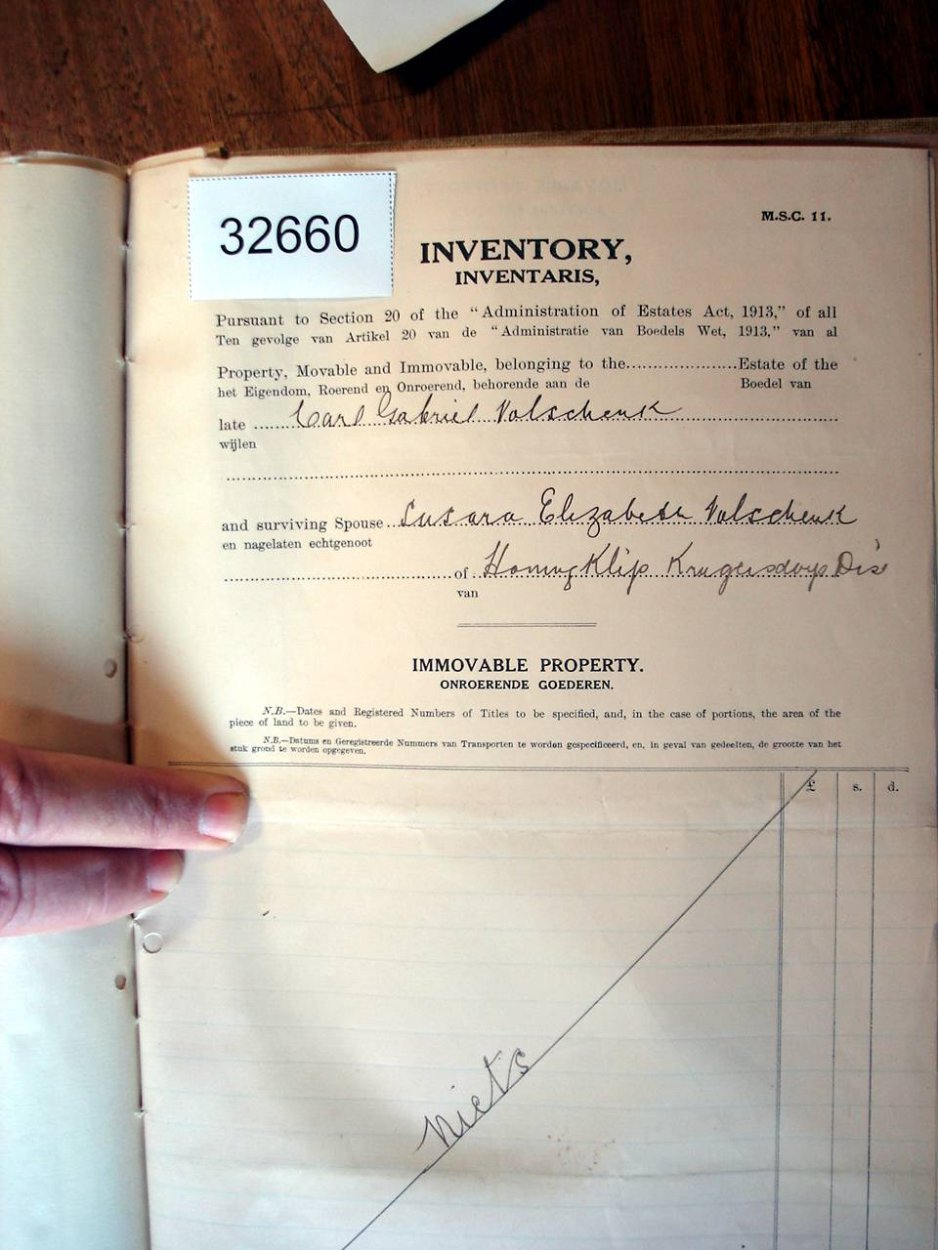 32660
M.S.C. 11.
INVENTORY,
INVENTARIS,
Pursuant to Section 20 of the "Administration of Estates Act, 1913," of all
Ten gevolge van Artikel 20 van de "Administratie van Boedels Wet, 1913," van al
Property, Movable and Immovable, belonging to the....................Estate of the
het Eigendom, Roerend en Onroerend, behorende aan de Boedel van
late Carl Gabriel Volschenk
wijlen
and surviving Spouse Susara Elizabeth Volschenk
en nagelaten echtgenoot
of HoningKlip Krugersdorp Dis
van
IMMOVABLE PROPERTY.
ONROERENDE GOEDEREN.
N.B.—Dates and Registered Numbers of Titles to be specified, and, in the case of portions, the area of the
piece of land to be given.
N.B.—Datums en Geregistreerde Nummers van Transporten te worden gespecificeerd, en, in geval van gedeelten, de grootte van het
stuk grond te worden opgegeven.
£ s. d.
Niets